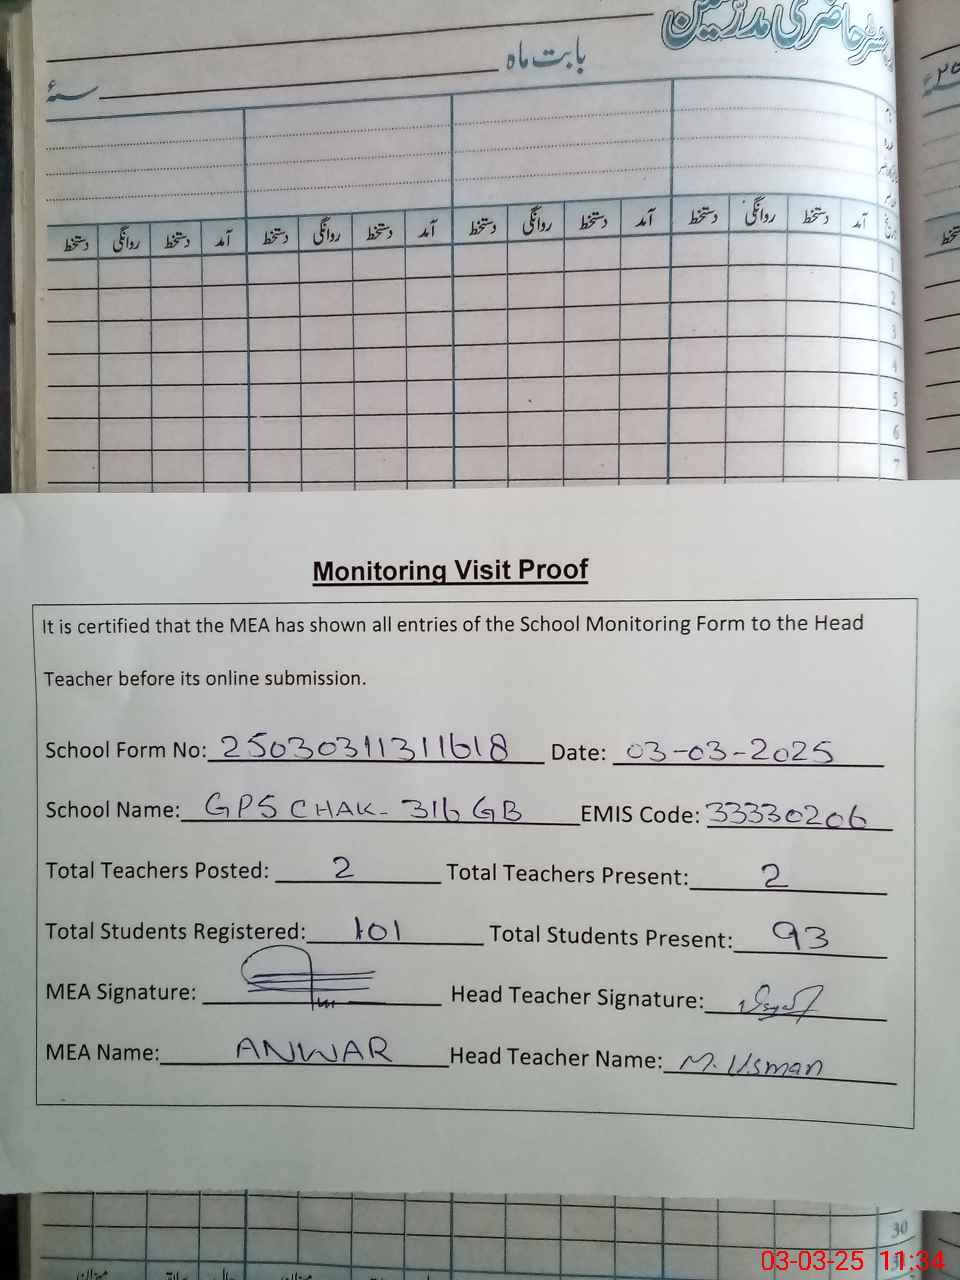 حاضری مدرسین
بابت ماہ
سنہء
آمد دستخط روانگی دستخط آمد دستخط روانگی دستخط آمد دستخط روانگی دستخط آمد دستخط روانگی دستخط
1
2
3
4
5
6
7
Monitoring Visit Proof
It is certified that the MEA has shown all entries of the School Monitoring Form to the Head
Teacher before its online submission.
School Form No: 25030311311618 Date: 03-03-2025
School Name: GPS CHAK- 316 GB EMIS Code: 33330206
Total Teachers Posted: 2 Total Teachers Present: 2
Total Students Registered: 101 Total Students Present: 93
MEA Signature: Head Teacher Signature:
MEA Name: ANWAR Head Teacher Name: M. Usman
30
03-03-25 11:34